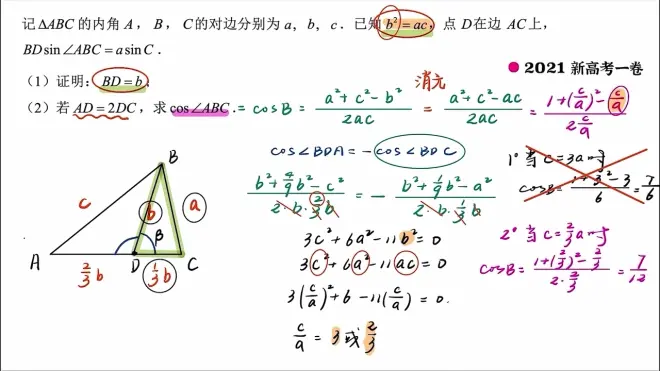 记△ABC 的内角 A，B，C的对边分别为 a，b，c．已知 b²=ac，点 D在边 AC上，
BD sin∠ABC = a sin C．
（1）证明：BD=b；
● 2021 新高考一卷
（2）若 AD=2DC，求 cos∠ABC．= cosB = (a²+c²-b²)/(2ac) = (a²+c²-ac)/(2ac) = (1+(c/a)²-c/a)/(2c/a)
消元
cos∠BDA = -cos∠BDC
(b²+4/9b²-c²)/(2·b·2/3b) = -(b²+1/9b²-a²)/(2·b·1/3b)
3c²+6a²-11b²=0
3c²+6a²-11ac=0
3(c/a)²+6-11(c/a)=0.
c/a = 3或2/3
1° 当c=3a时
cosB=(1+3²-3)/6=7/6
2° 当c=2/3a时
cosB=(1+(2/3)²-2/3)/(2·2/3)=7/12
B
c
b
a
β
A
D
C
2/3b
1/3b